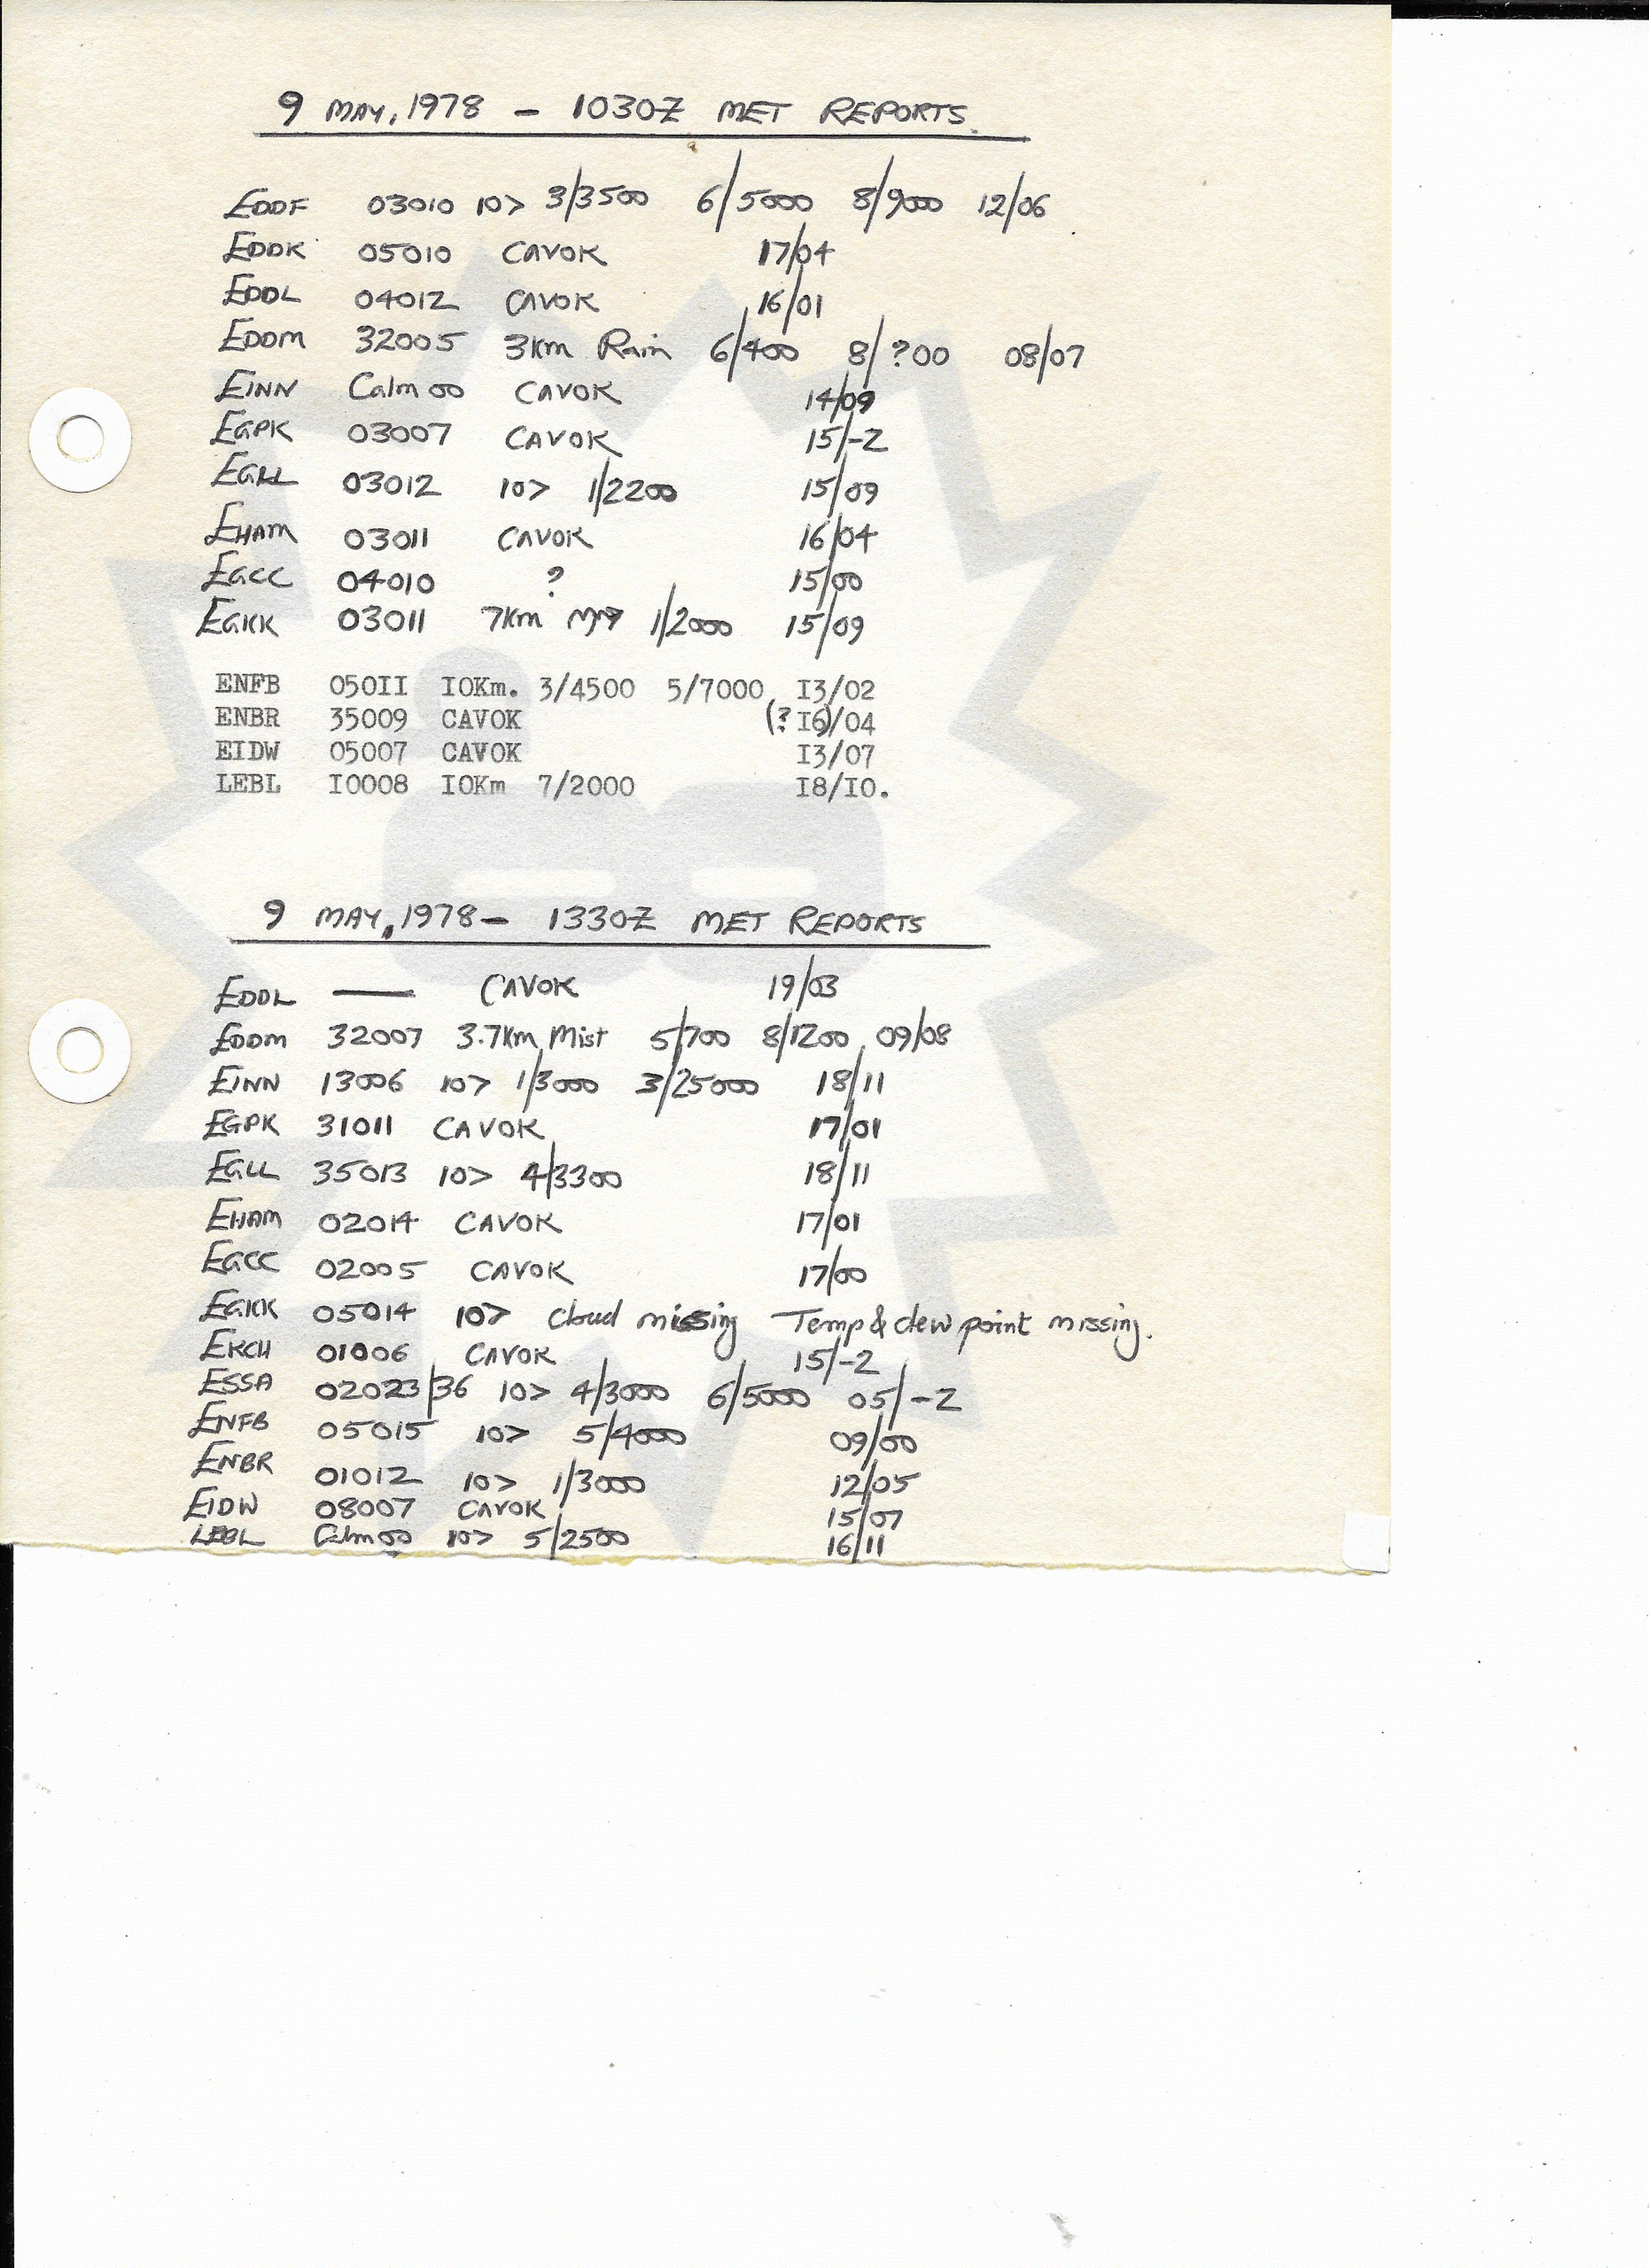 9 MAY, 1978 - 1030Z MET REPORTS.
EDDF 03010 10> 3/3500 6/5000 8/9000 12/06
EDDK 05010 CAVOK 17/04
EDDL 04012 CAVOK 16/01
EDDM 32005 3Km Rain 6/400 8/?00 08/07
EINN Calm 00 CAVOK 14/09
EGPK 03007 CAVOK 15/-2
EGLL 03012 10> 1/2200 15/09
EHAM 03011 CAVOK 16/04
EGCC 04010 ? 15/00
EGKK 03011 7Km 1/2000 15/09
ENFB 050II I0Km. 3/4500 5/7000 I3/02
ENBR 35009 CAVOK (?I6)/04
EIDW 05007 CAVOK I3/07
LEBL I0008 I0Km 7/2000 I8/I0.
9 MAY, 1978 - 1330Z MET REPORTS
EDDL — CAVOK 19/03
EDDM 32007 3.7Km Mist 5/700 8/1200 09/08
EINN 13006 10> 1/3000 3/25000 18/11
EGPK 31011 CAVOK 17/01
EGLL 35013 10> 4/3300 18/11
EHAM 02014 CAVOK 17/01
EGCC 02005 CAVOK 17/00
EGKK 05014 10> Cloud missing Temp & dew point missing.
EKCH 01006 CAVOK 15/-2
ESSA 02023/36 10> 4/3000 6/5000 05/-2
ENFB 05015 10> 5/4000 09/00
ENBR 01012 10> 1/3000 12/05
EIDW 08007 CAVOK 15/07
LEBL Calm 00 10> 5/2500 16/11